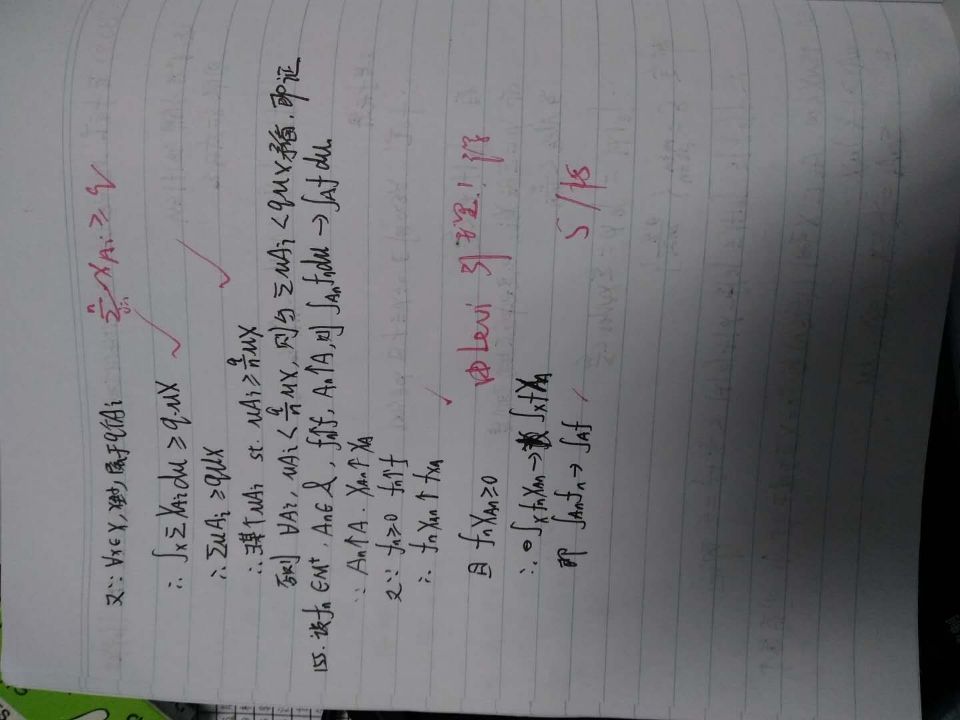 又∵ ∀x∈X, x至少属于q个Ai
∑ⁿᵢ₌₁ χAi ≥ q
∴ ∫x ∑χAi dμ ≥ q·μX
∴ ∑μAi ≥ qμX
∴ ∃某个μAi st. μAi ≥ q/n μX
否则 ∀Ai, μAi < q/n μX, 则与 ∑μAi < qμX矛盾, 即证
155. 设fn∈M⁺, An∈𝒜, fn↑f, An↑A, 则 ∫An fn dμ → ∫A f dμ.
∵ An↑A. χAn↑χA
又∵ fn≥0 fn↑f
∴ fnχAn ↑ fχA
且 fnχAn≥0
由Levi 引理!
∴ ∫x fnχAn → ∫x fχA
即 ∫An fn → ∫A f
5/18